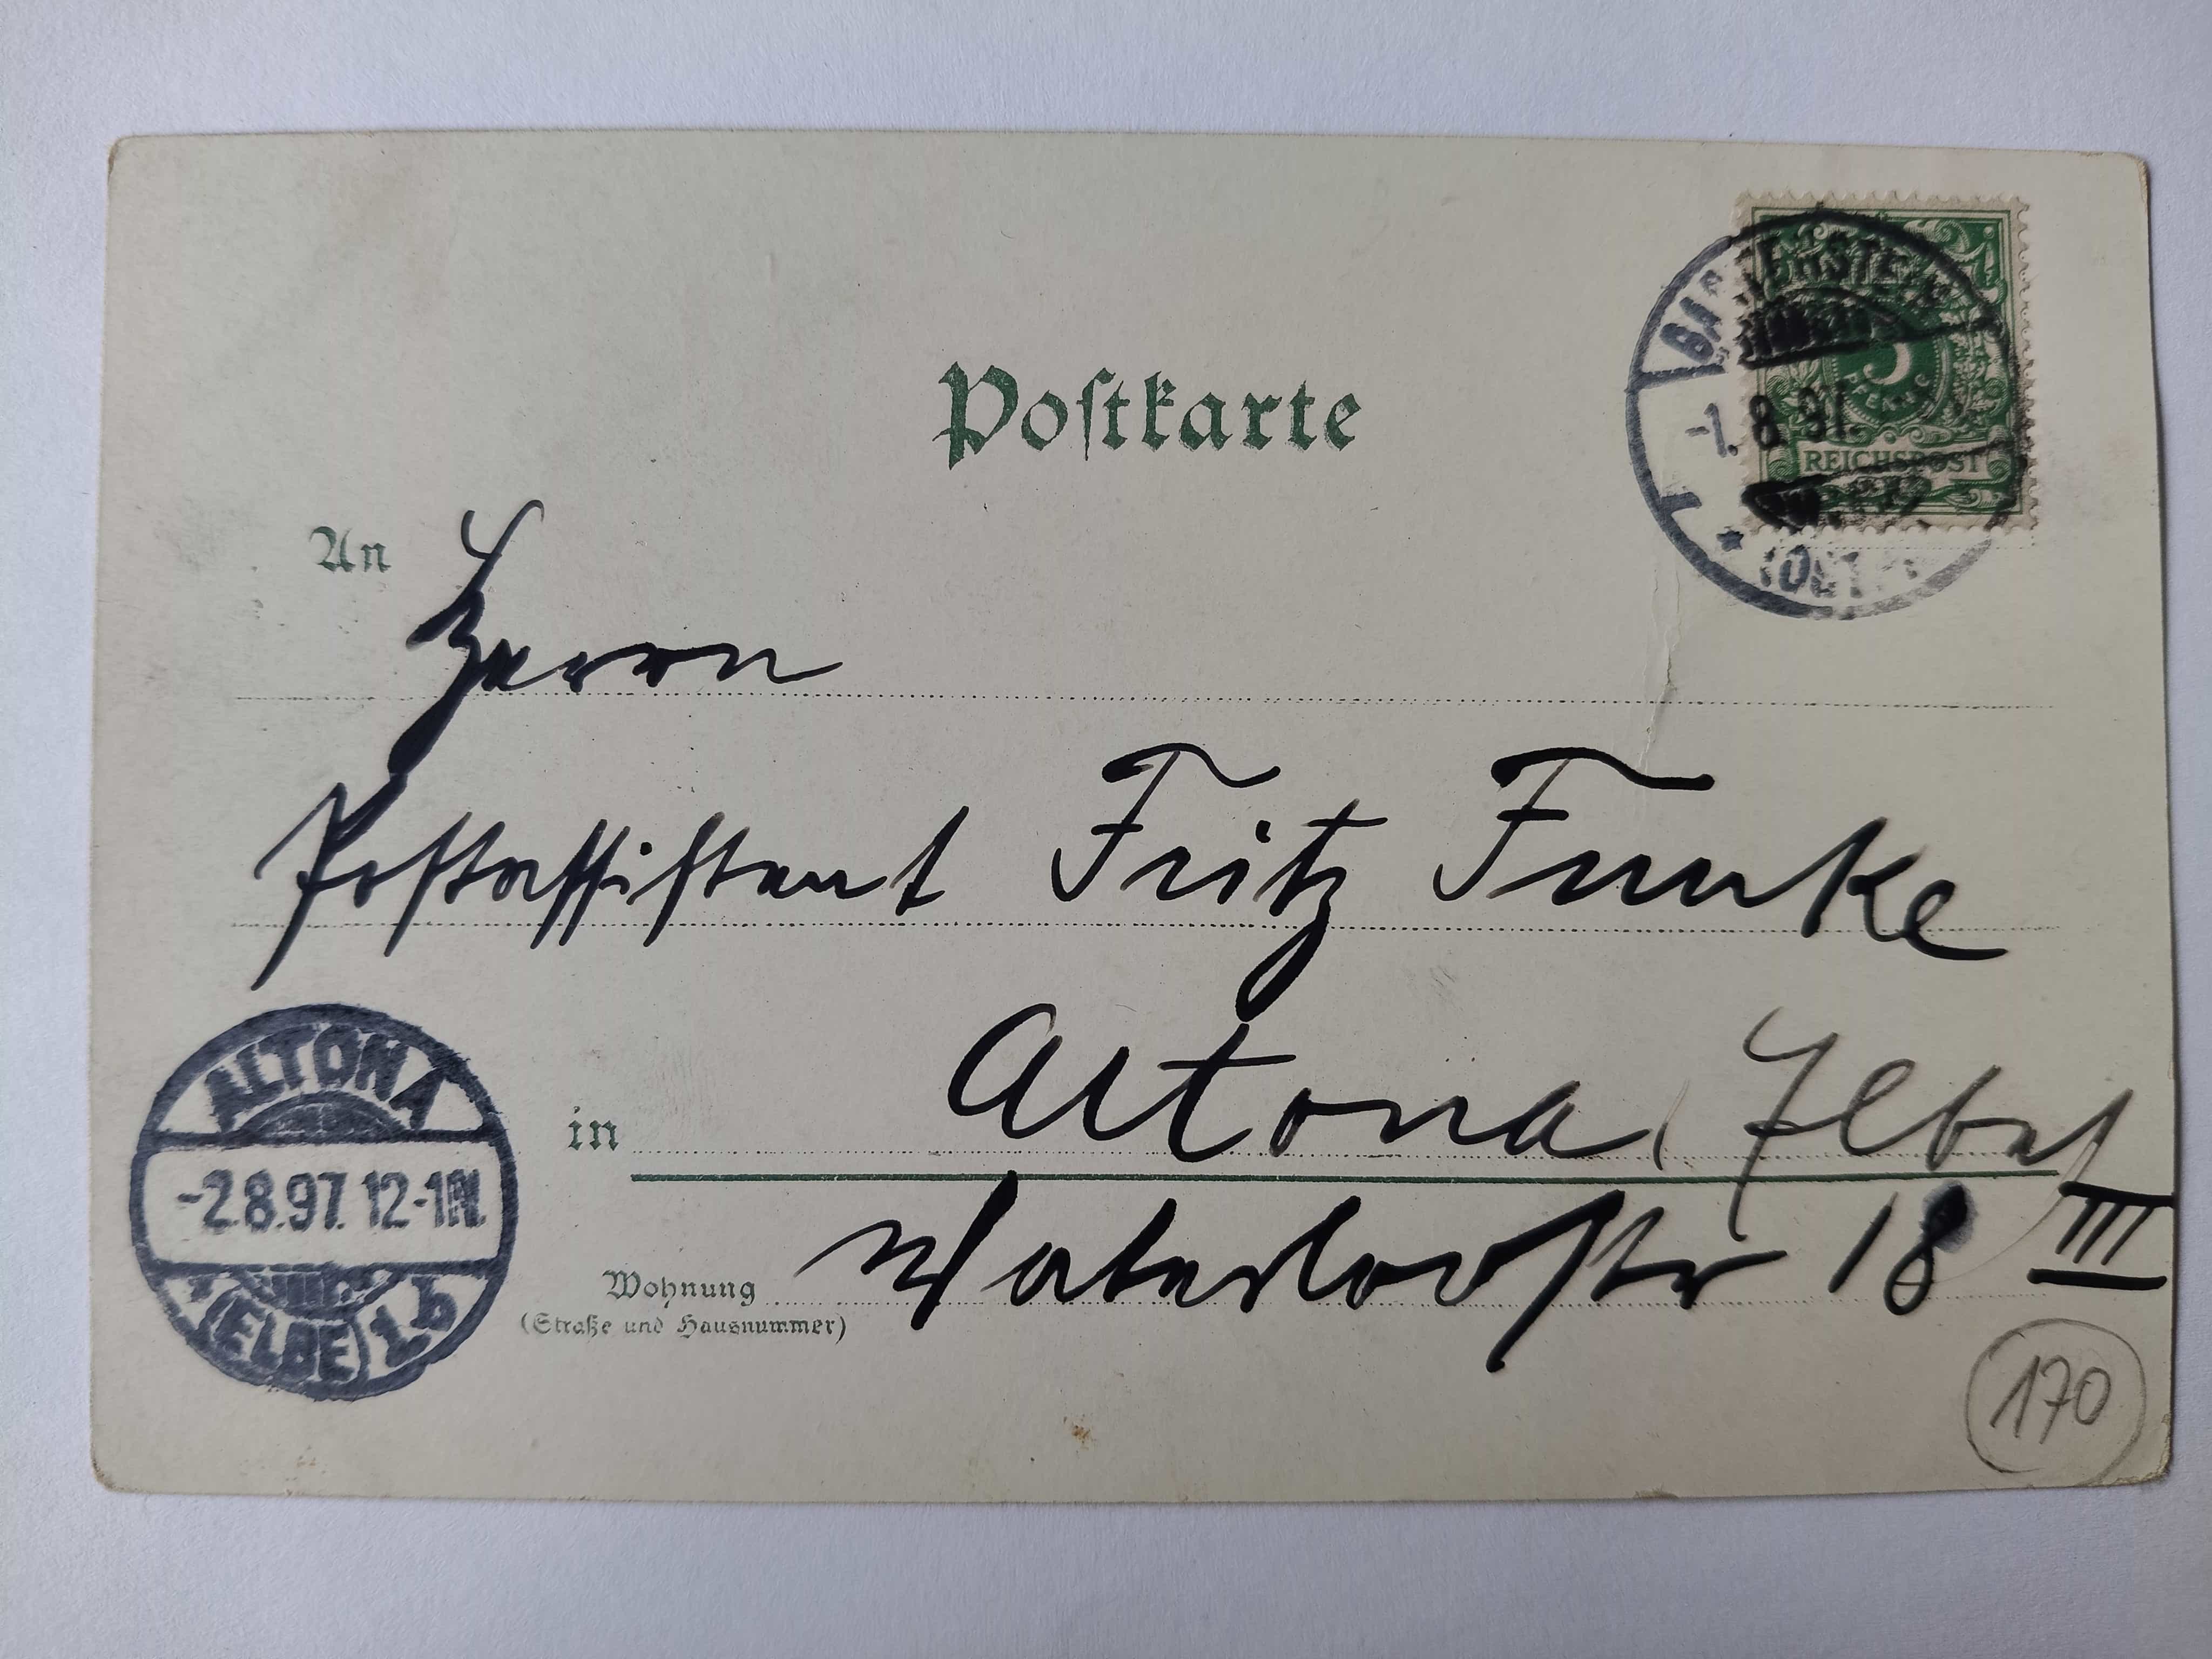 Postkarte
5
PFENNIG
REICHSPOST
-1. 8. 97.
An Herrn
Postassistent Fritz Funke
in Altona,
Waterloostr 18 III
Wohnung
(Straße und Hausnummer)
ALTONA
-2.8.97. 12-1N.
* (ELBE) 1.b
170